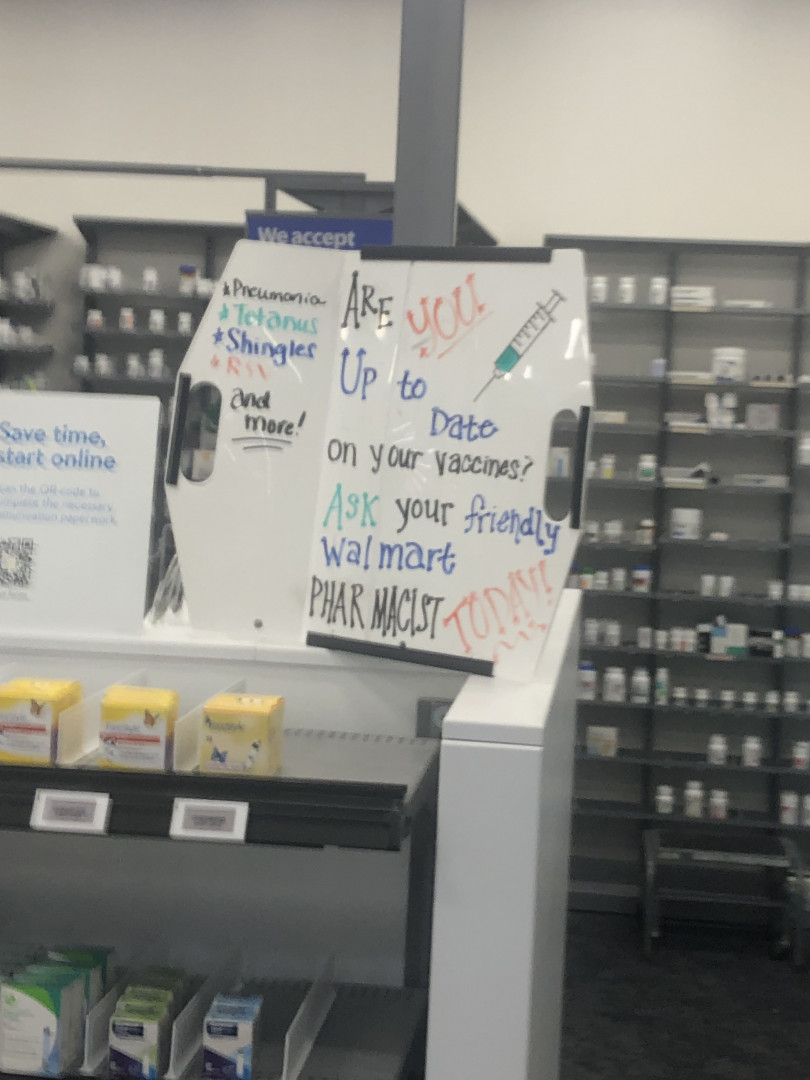 We accept
*Pneumonia
*Tetanus
*Shingles
*RSV
and
more!
ARE YOU!
Up to
Date
on your vaccines?
Ask your friendly
Walmart
PHARMACIST TODAY!
Save time,
start online